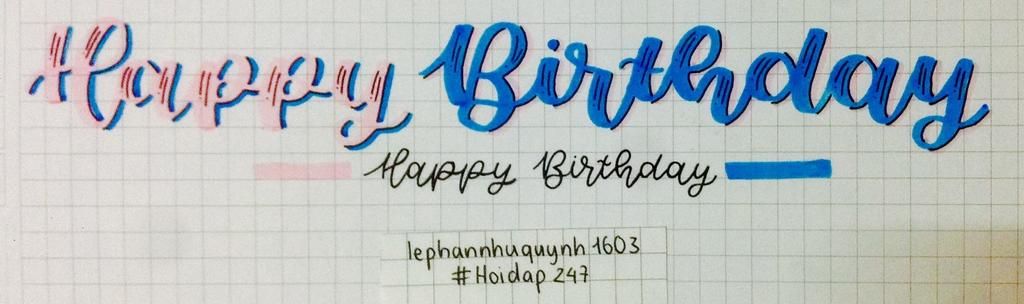 Happy Birthday
Happy Birthday
lephannhuquynh1603
#Hoidap247